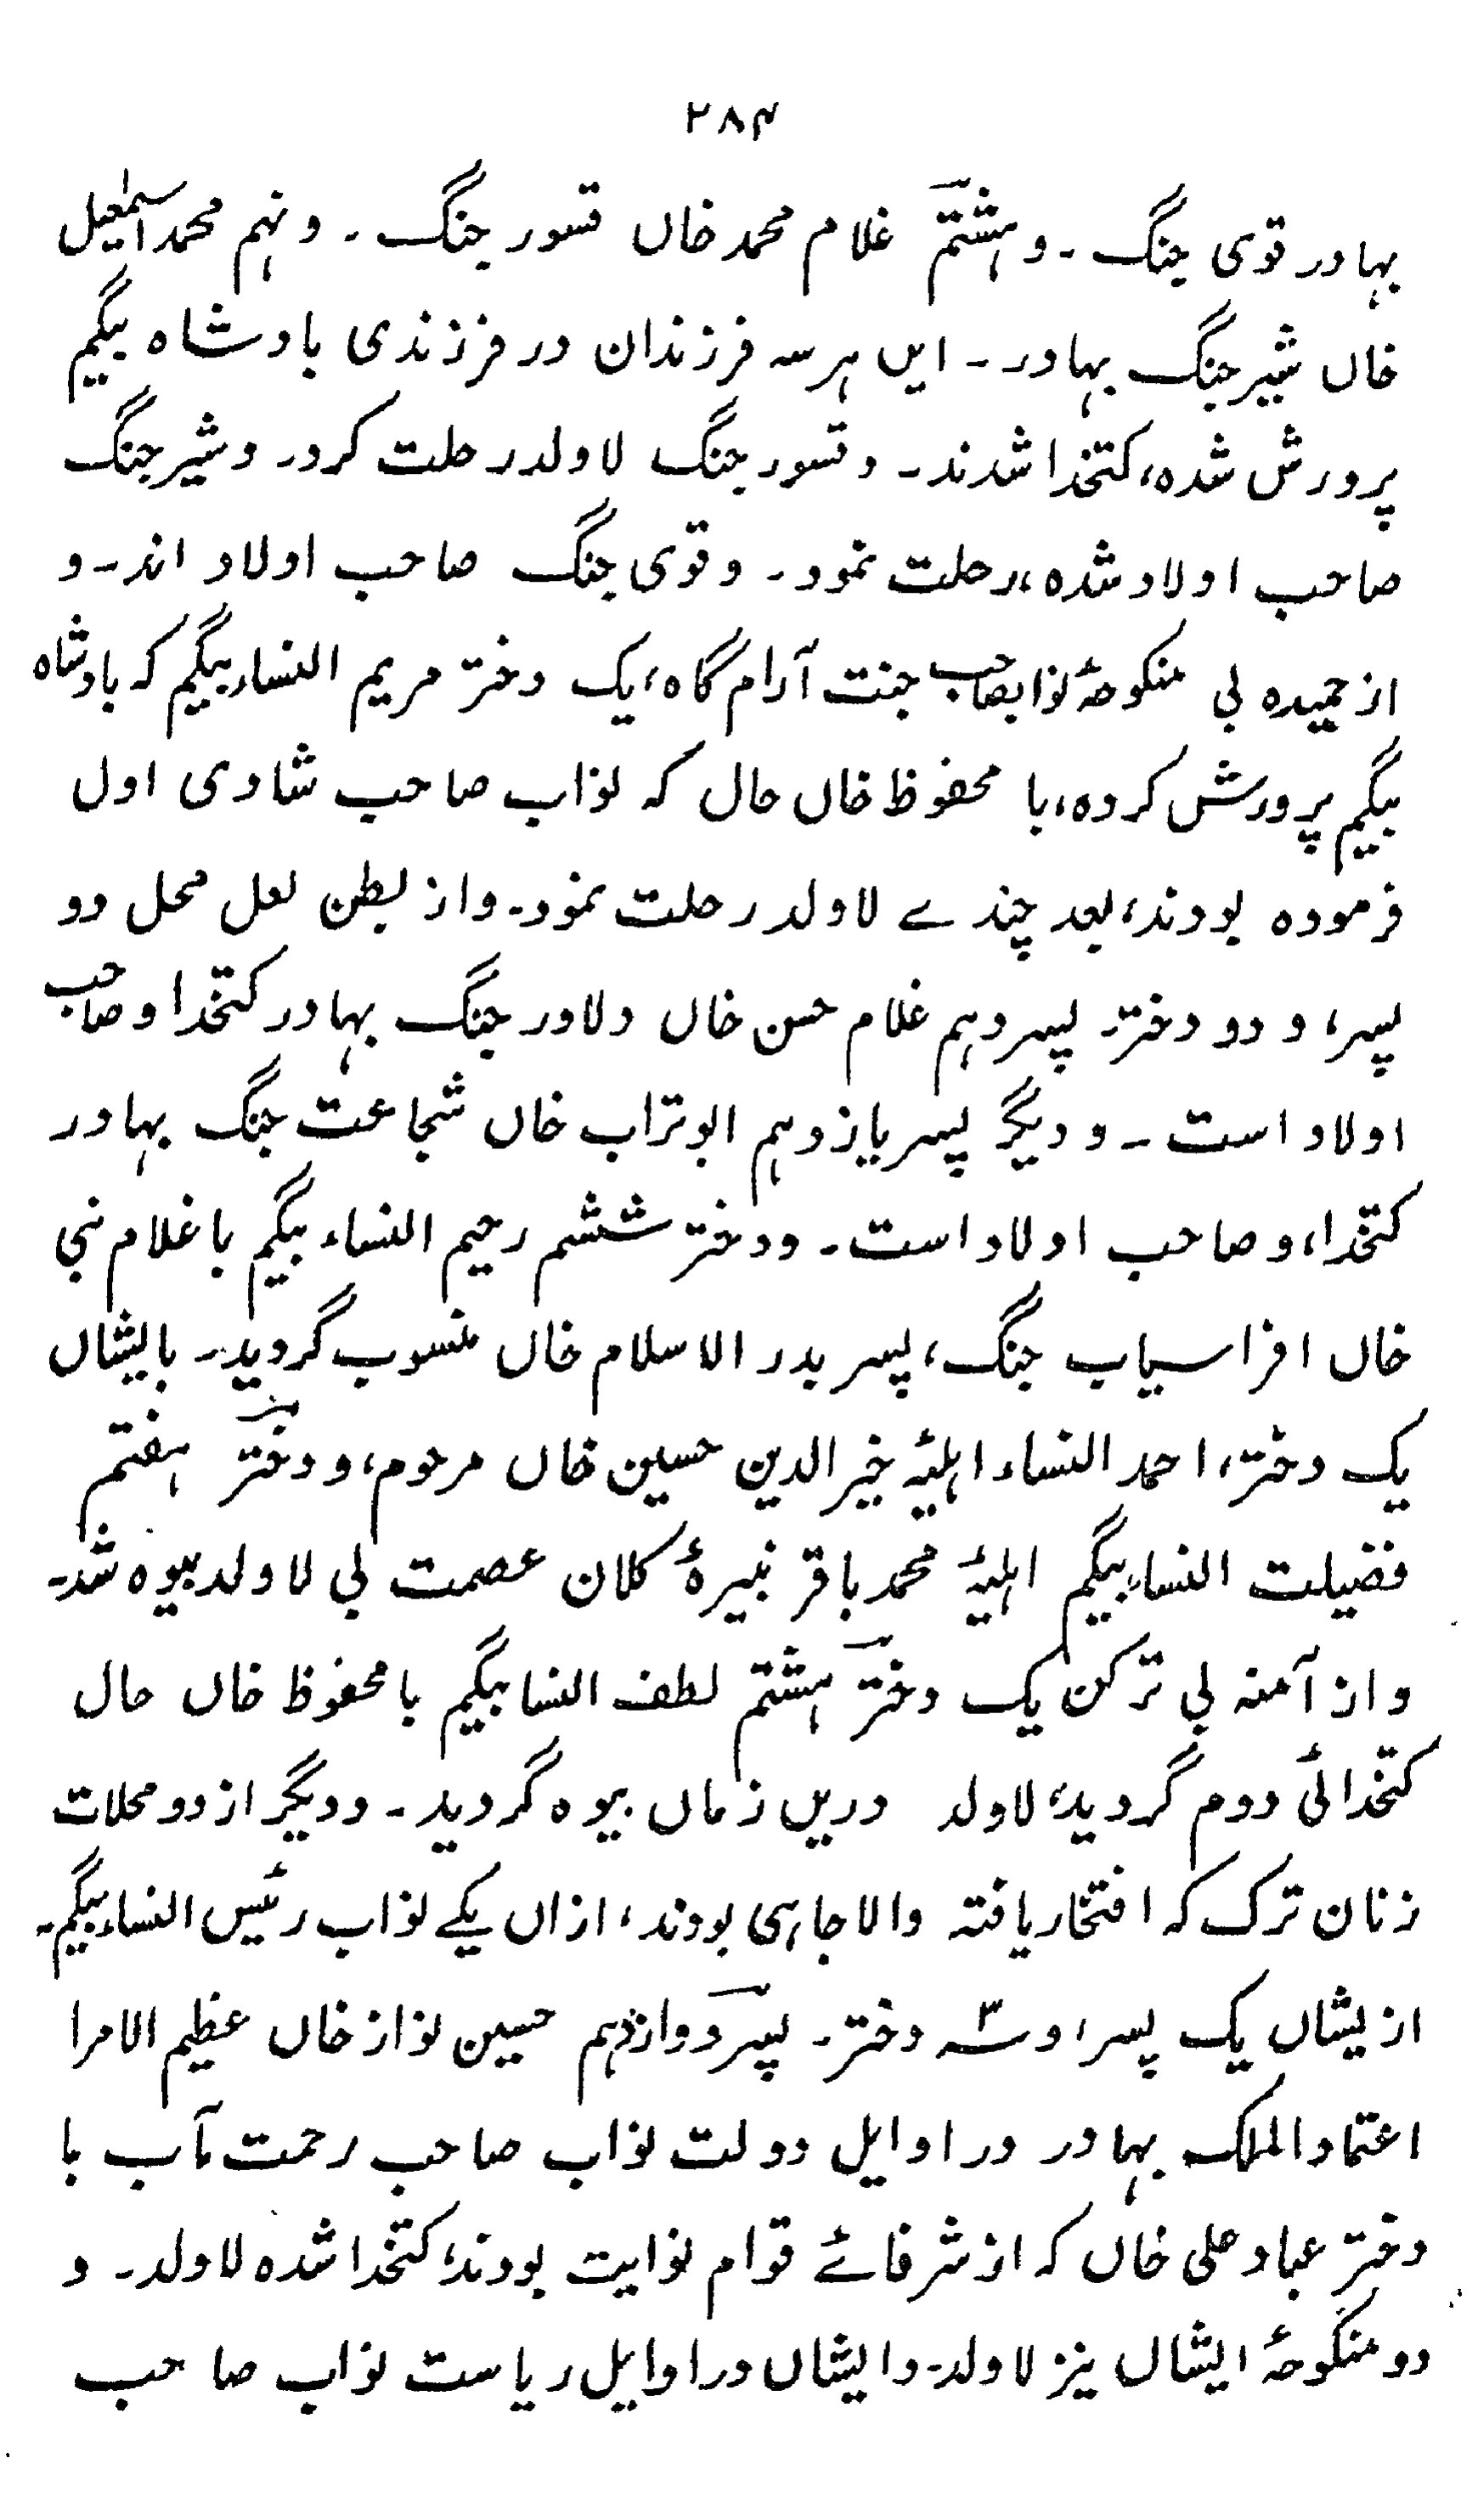 ۲۸۴
بہادر قوی جنگ ۔ و ہشتم غلام محمد خاں قسور جنگ ۔ و نہم محمد اسمٰعیل
خاں شیر جنگ بہادر ۔ ایں ہر سہ فرزندان در فرزندی بادشاہ بیگم
پرورش شدہ، کتخدا شدند ۔ و قسور جنگ لا ولد رحلت کرد ۔ و شیر جنگ
صاحب اولاد شدہ، رحلت نمود ۔ و قوی جنگ صاحب اولاد اند ۔ و
از حمیدہ بی منکوحۂ نواب صاحب جنت آرام گاہ، یک دختر مریم النساء بیگم کہ بادشاہ
بیگم پرورش کردہ، با محفوظ خاں حال کہ نواب صاحب شادی اول
فرمودہ بودند، بعد چندے لا ولد رحلت نمود ۔ و از بطن لعل محل دو
پسر، و دو دختر ۔ پسر دہم غلام حسن خاں دلاور جنگ بہادر کتخدا و صاحب
اولاد است ۔ و دیگر پسر یازدہم ابو تراب خاں شجاعت جنگ بہادر
کتخدا، و صاحب اولاد است ۔ و دختر ششم رحیم النساء بیگم با غلام نبی
خاں افراسیاب جنگ، پسر بدر الاسلام خاں منسوب گردید ۔ بایشاں
یک دختر، احمد النساء اہلیۂ خیر الدین حسین خاں مرحوم، و دختر ہفتم
فضیلت النساء بیگم اہلیۂ محمد باقر نبیرۂ کلان عصمت بی لا ولد بیوہ شد ۔
و از آمنہ بی ترکن یک دختر ہشتم لطف النسا بیگم با محفوظ خاں حال
کتخدائی دوم گردید، لا ولد دریں زماں بیوہ گردید ۔ و دیگر از دو محلات
زنان ترک کہ افتخار یافتہ والا جاہی بودند، ازاں یکے نواب رئیس النساء بیگم ۔
ازیشاں یک پسر، و سہ دختر ۔ پسر دوازدہم حسین نواز خاں عظیم الامرا
اعتماد الملک بہادر در اوایل دولت نواب صاحب رحمت مآب با
دختر عباد علی خاں کہ از شرفائے قوام نوایت بودند، کتخدا شدہ لا ولد ۔ و
دو منکوحۂ ایشاں نیز لا ولد ۔ و ایشاں در اوایل ریاست نواب صاحب